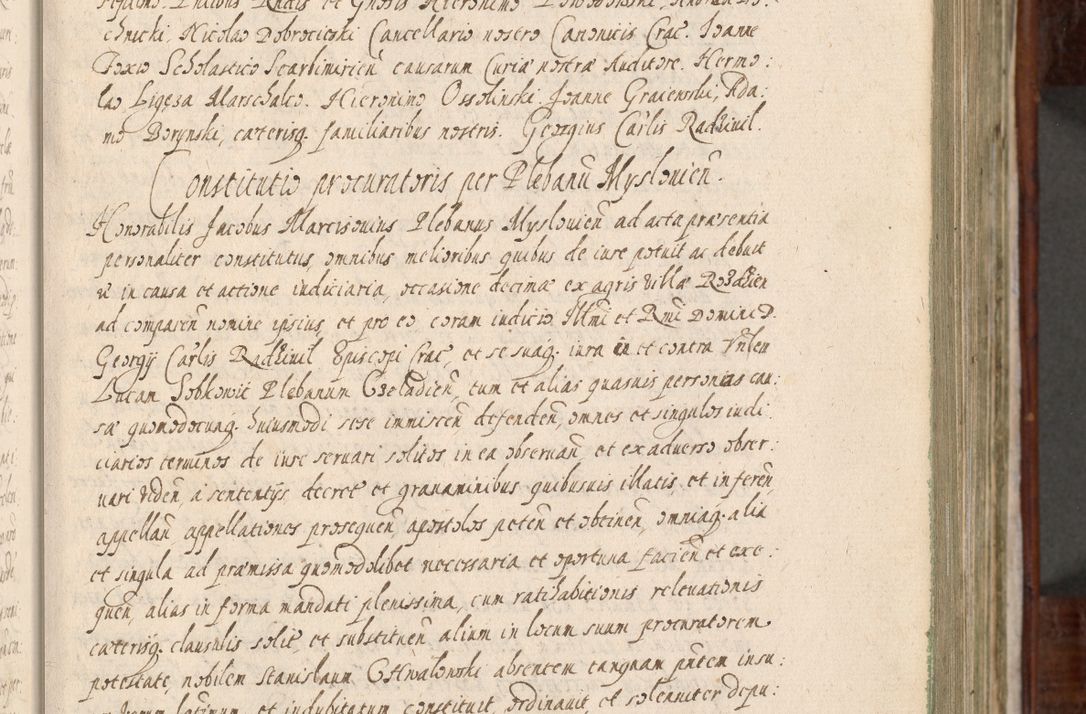 chnicki. Nicolao Dobrocieski Cancellario nostro Canonicis Crac. Joanne
Foxio Scholastico Scarbimirien̄ causarum Curiæ nostræ Auditore. Hermo:
lao Ligeza Marschalco. Hieronimo Ossolinski. Joanne Graienski, Ada:
mo Borynski, cæterisq. familiaribus nostris. Georgius Car̃lis Radziuil.
Constitutio procuratoris per Plebanũ Myslouicen̄.
Honorabilis Jacobus Marcisouius Plebanus Myslouien̄ ad acta præsentia
personaliter constitutus, omnibus melioribus quibus de iure potuit ac debuit
in causa et actione iudiciaria, occasione decimæ ex agris villæ Rozdzien
ad comparen̄ nomine ipsius, et pro eo coram iudicio Illm̃i et Rm̃i Domini D.
Georgij Car̃lis Radziuil Episcopi Crac, et se suaq. iura in et contra Vñlem
Lucam Sobkowic Plebanum Czeladien̄, tum et alias quasuis personas cau:
sæ quomodocunq. huiusmodi sese immiscen̄ defenden̄, omnes et singulos iudi:
ciarios terminos de iure seruari solitos in ea obseruan̄, et ex aduerso obser:
uari viden̄, a sententijs decret̃ et grauaminibus quibusuis illatis, et inferen̄,
appellan̄ appellationes prosequen̄, apostolos peten̄ et obtinen̄, omniaq. alia
et singula ad præmissa quomodolibet necessaria et oportuna facien̄ et exe:
quen̄, alias in forma mandati plenissima, cum ratihabitionis releuationis
cæterisq. clausulis solit̃, et substituen̄ alium in locum suum procuratorem
potestate, nobilem Stanislaum Chwalowski absentem tanquam pñtem insu:
et indubitatum constituit, ordinauit, et solenniter depu: